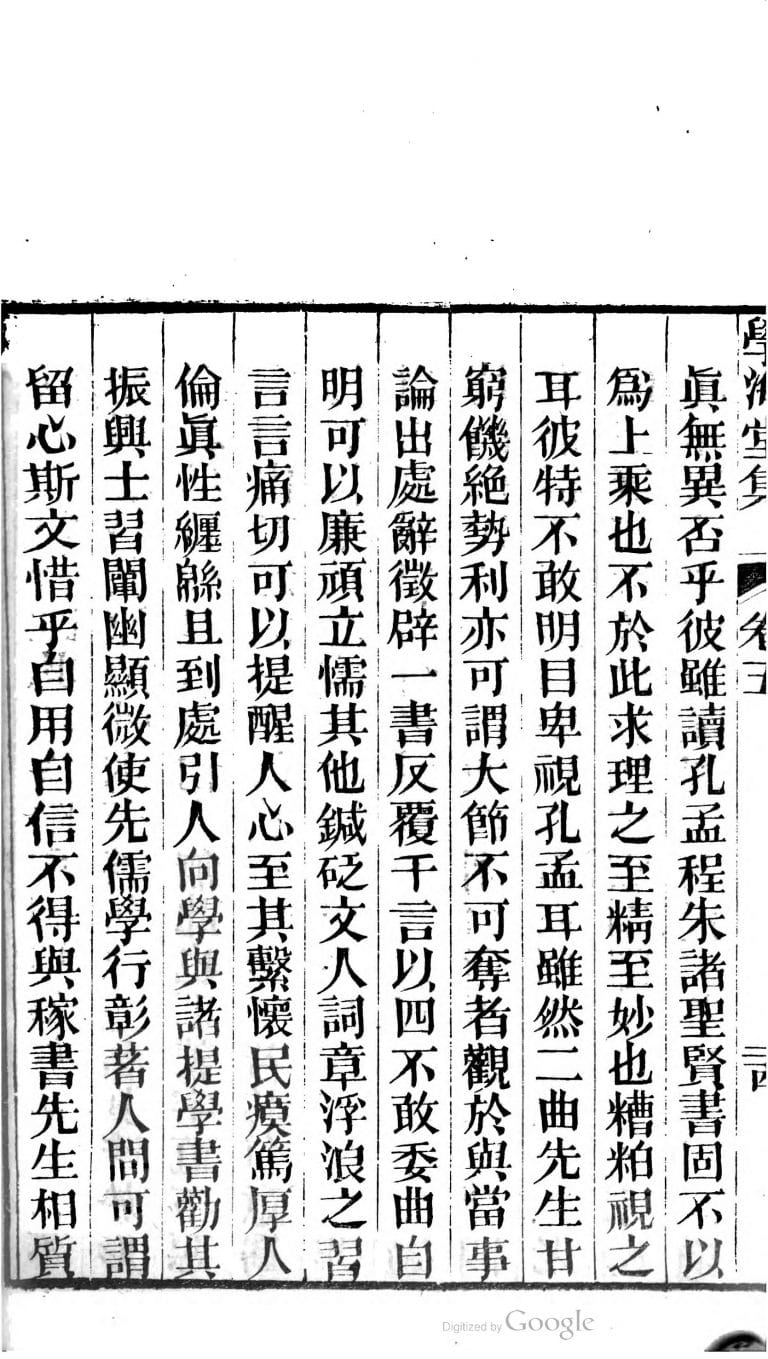 學海堂集 卷五 二四
眞無異否乎彼雖讀孔孟程朱諸聖賢書固不以
爲上乘也不於此求理之至精至妙也糟粕視之
耳彼特不敢明目卑視孔孟耳雖然二曲先生甘
窮餓絕勢利亦可謂大節不可奪者觀於與當事
論出處辭徵辟一書反覆千言以四不敢委曲自
明可以廉頑立懦其他鍼砭文人詞章浮浪之習
言言痛切可以提醒人心至其繫懷民瘼篤厚人
倫眞性纏緜且到處引人向學與諸提學書勸其
振興士習闡幽顯微使先儒學行彰著人間可謂
留心斯文惜乎自用自信不得與稼書先生相質
Digitized by Google